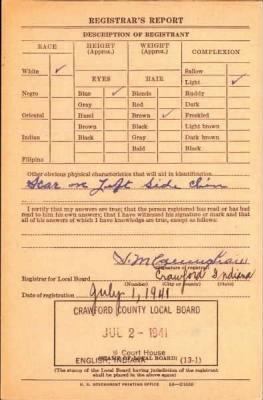 REGISTRAR'S REPORT
DESCRIPTION OF REGISTRANT
RACE HEIGHT (Approx.) WEIGHT (Approx.) COMPLEXION
White ✓ EYES HAIR Sallow
Light ✓
Negro Blue ✓ Blonde Ruddy
Gray Red Dark
Oriental Hazel Brown ✓ Freckled
Brown Black Light brown
Indian Black Gray Dark brown
Bald Black
Filipino
Other obvious physical characteristics that will aid in identification
Scar on Left Side Chin
I certify that my answers are true; that the person registered has read or has had
read to him his own answers; that I have witnessed his signature or mark and that
all of his answers of which I have knowledge are true, except as follows:
(Signature of registrar)
Registrar for Local Board Crawford Indiana
(Number) (City or county) (State)
Date of registration July 1, 1941
CRAWFORD COUNTY LOCAL BOARD
JUL 2 - 1941
Court House
ENGLISH, INDIANA (13-1)
(STAMP OF LOCAL BOARD)
(The stamp of the Local Board having jurisdiction of the registrant
shall be placed in the above space)
U. S. GOVERNMENT PRINTING OFFICE